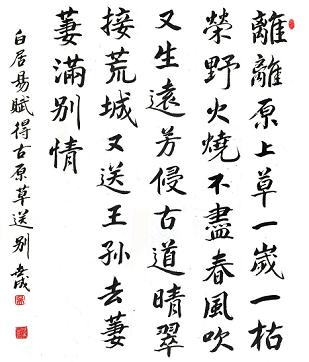 離離原上草一歲一枯
榮野火燒不盡春風吹
又生遠芳侵古道晴翠
接荒城又送王孫去萋
萋滿别情
白居易賦得古原草送别